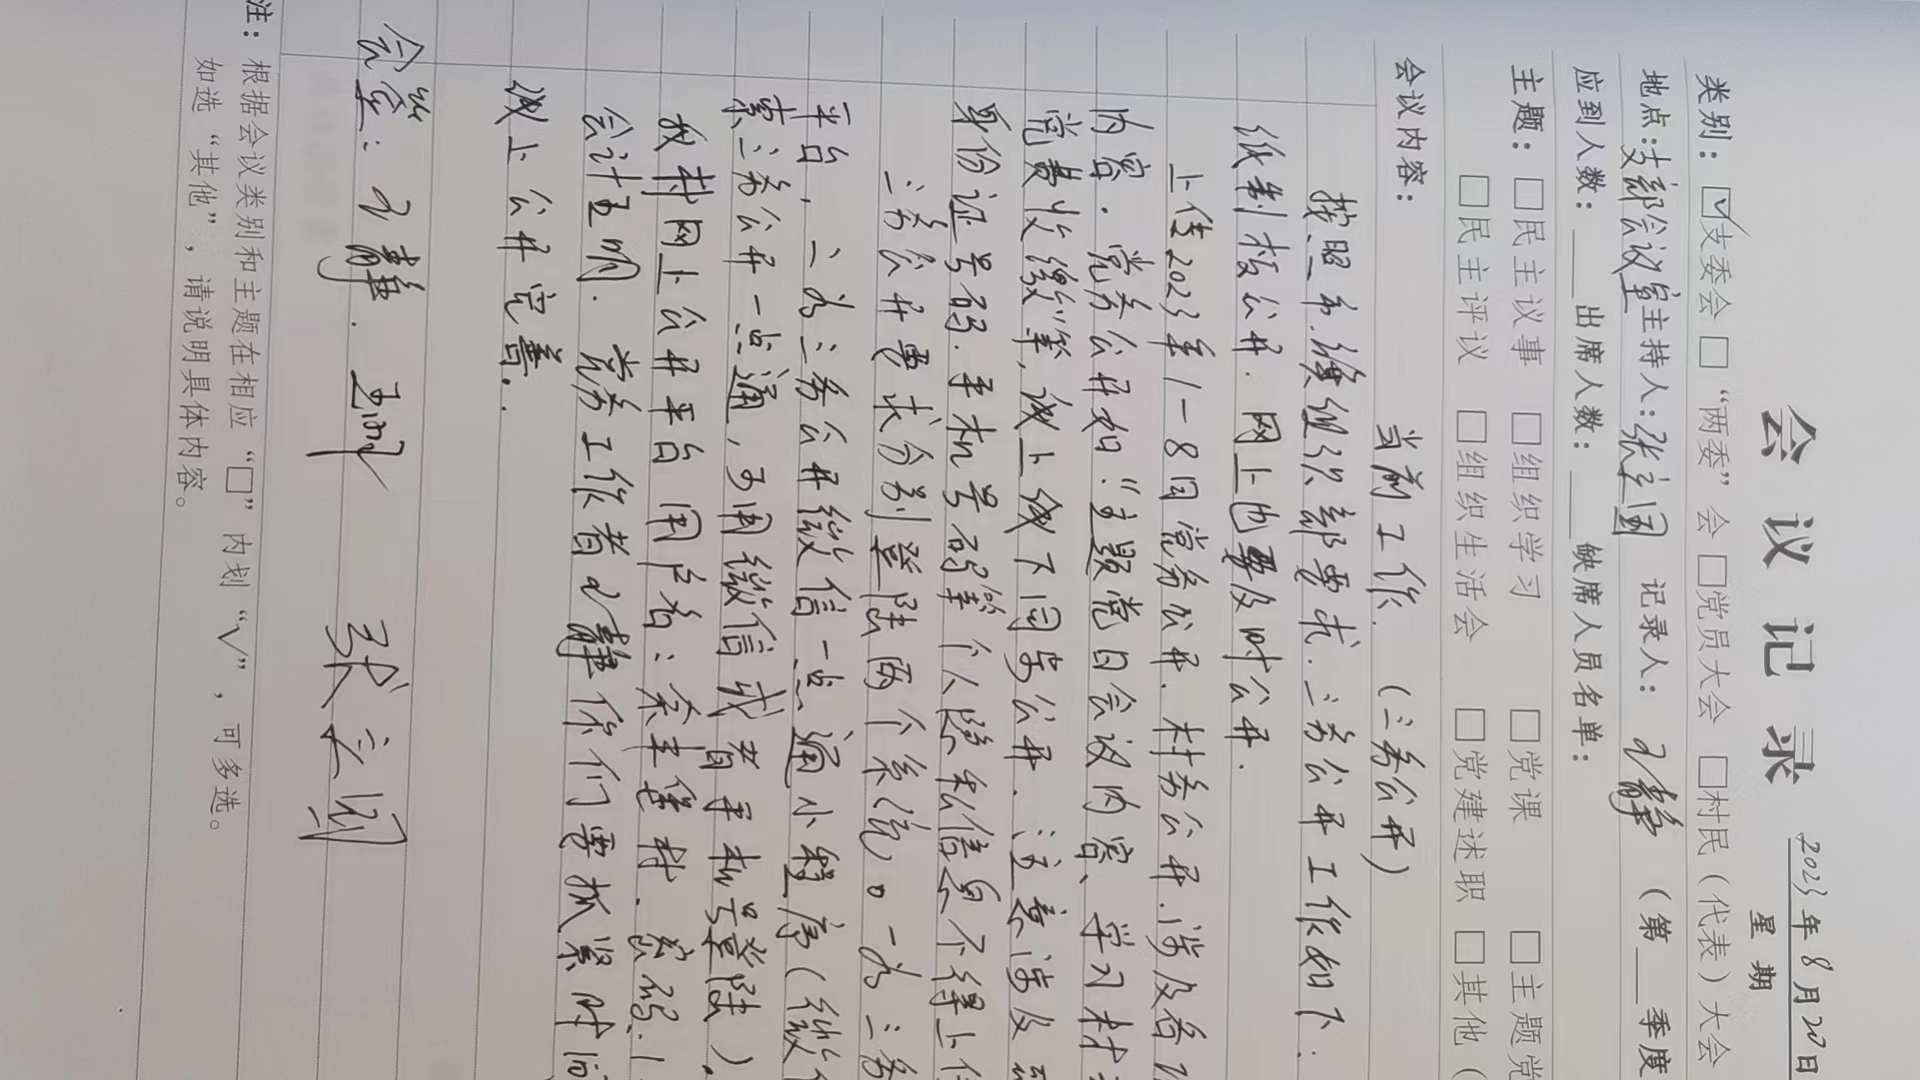 会议记录
2023年8月20日
星期
类别：☑支委会 □“两委”会 □党员大会 □村民（代表）大会
地点：支部会议室 主持人：张立国 记录人： 静 （第 季度
应到人数： 出席人数： 缺席人员名单：
主题：□民主议事 □组织学习 □党课 □主题党
□民主评议 □组织生活会 □党建述职 □其他（
会议内容： 当前工作.（三务公开）
按照市.镇组织部要求.三务公开工作如下.
纸制板公开.网上也要及时公开.
上传2023年1-8月党务公开.村务公开.涉及着
内容.党务公开和“主题党日会议内容、学习材
党费收缴等,线上线下同步公开.注意涉及
身份证号码.手机号码等个人隐私信息不得上传
三务公开要求分别登陆两个系统。一为三务
平台,二为三务公开微信一点通小程序（微信
索三务公开一点通,可用微信或者手机号登陆）.
我村网上公开平台用户名：余丰堡村.密码:1
会计王明.党务工作者 静你们要抓紧时间
线上公开完善.
会签： 静. 王明 张立国
注：根据会议类别和主题在相应“□”内划“√”，可多选。
如选“其他”，请说明具体内容。